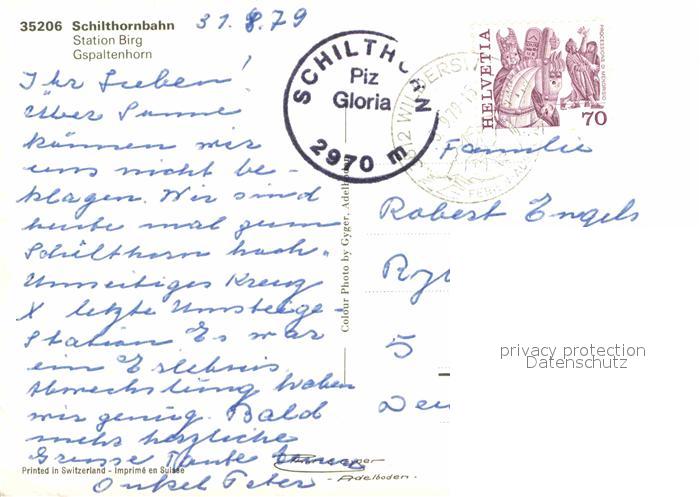 35206 Schilthornbahn
Station Birg
Gspaltenhorn
31.8.79
Ihr Lieben!
Über Sonne
können wir
uns nicht be-
klagen. Wir sind
heute mal zum
Schilthorn hoch.
Umseitiges Kreuz
X letzte Umsteige-
station Es war
ein Erlebnis.
Abwechslung haben
wir genug. Bald
mehr herzliche
Grüsse Tante
Onkel Peter
Printed in Switzerland - Imprimé en Suisse
Colour Photo by Gyger, Adelboden
SCHILTHORN
Piz
Gloria
2970 m
HELVETIA
70
Familie
Robert Engels
5
privacy protection
Datenschutz
- Adelboden -